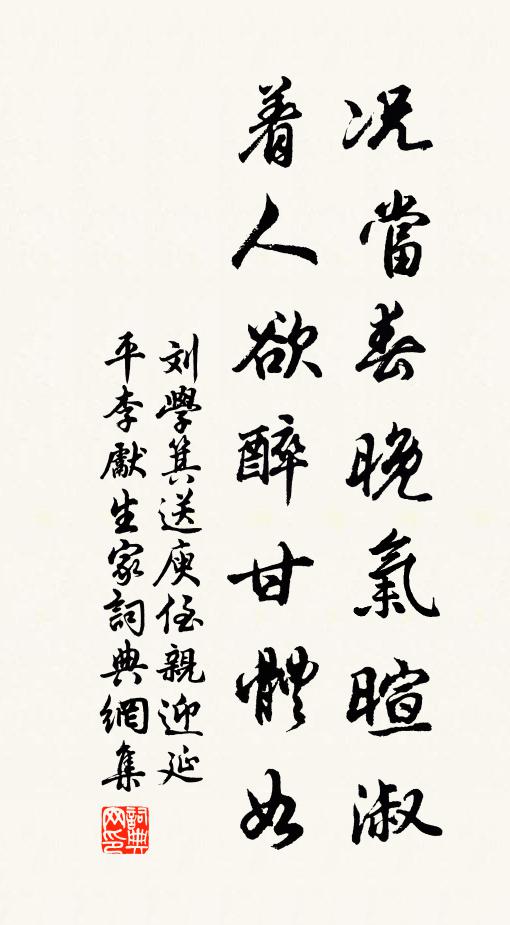 况當春晚氣暄淑
着人欲醉甘體如
刘學箕送庾侄親迎延
平李獻生家詞典網集
詞典网印